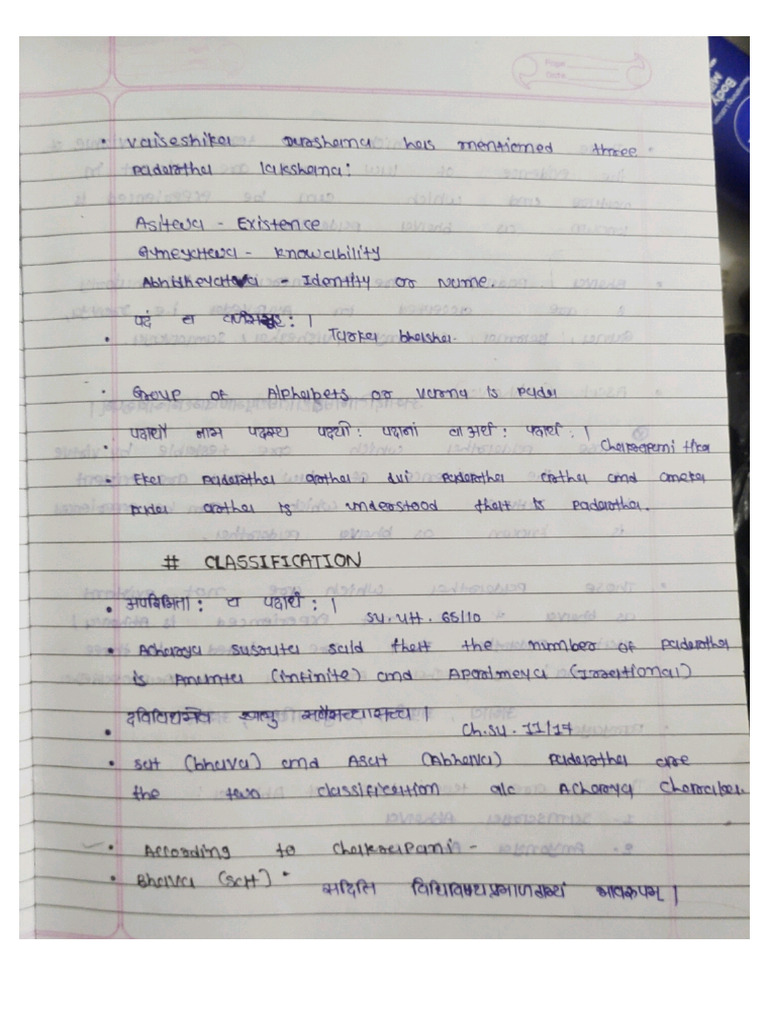 Page
Date
• Vaiseshika Darshana has mentioned three
Padartha lakshana:
Asitwa - Existence
Gyneyatwa - Knowability
Abhidheyatva - Identity or Name.
पदं च वर्णसमूह: |
• Tarka bhasha.
• Group of Alphabets or Varna is Pada
पदार्थो नाम पदस्य पदयो: पदानां वा अर्थ: पदार्थ: |
• Chakrapani tika
• Eka padartha artha, dui padartha artha and aneka
pada artha is understood that is padartha.
# CLASSIFICATION
• अपरिमिता: च पदार्थ: |
Su. Utt. 65/10
• Acharya Susruta said that the number of padartha
is Ananta (infinite) and Aparimeya (Irrational)
खलु
• Ch.Su. 11/17
• Sat (bhava) and Asat (Abhava) padartha are
the two classification a/c Acharya Charaka.
• According to Chakrapani -
• Bhava (Sat) •
सदिति विधिविषयप्रमाणगम्यं भावरूपम् |
Body